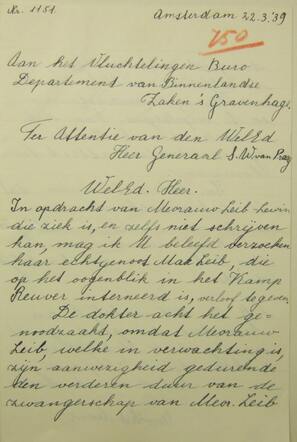 Nr. 1151.
Amsterdam 22.3.'39
750
Aan het Vluchtelingen Buro
Departement van Binnenlandse
Zaken 's Gravenhage.
Ter Attentie van den WelEd
Heer Generaal S. W. van Praag
WelEd. Heer.
In opdracht van Mevrauw Leib Lewin
die ziek is, en zelfs niet schrijven
kan, mag ik U beleefd verzoeken
haar echtgenoot Max Leib, die
op het oogenblik in het Kamp
Reuver interneerd is, verlof te geven.
De dokter acht het ge-
noodzaakt, omdat Mevrauw
Leib, welke in verwachting is,
zijn aanwezigheid gedurende
den verderen duur van de
zwangerschap van Mevr. Leib